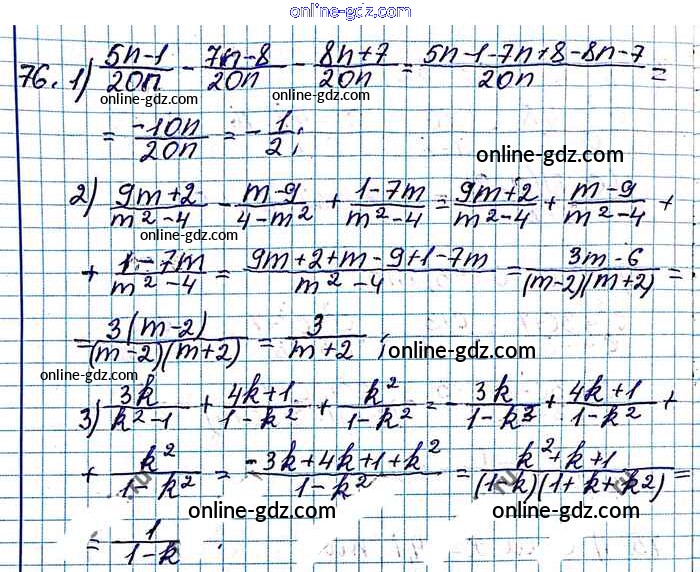 online-gdz.com
online-gdz.com
76. 1) (5n-1)/(20n) - (7n-8)/(20n) - (8n+7)/(20n) = (5n-1-7n+8-8n-7)/(20n) =
online-gdz.com online-gdz.com
= (-10n)/(20n) = -1/2;
online-gdz.com
2) (9m+2)/(m²-4) - (m-9)/(4-m²) + (1-7m)/(m²-4) = (9m+2)/(m²-4) + (m-9)/(m²-4) +
online-gdz.com
+ (1-7m)/(m²-4) = (9m+2+m-9+1-7m)/(m²-4) = (3m-6)/((m-2)(m+2)) =
= (3(m-2))/((m-2)(m+2)) = 3/(m+2);
online-gdz.com
online-gdz.com
3) (3k)/(k²-1) + (4k+1)/(1-k²) + (k²)/(1-k²) = -(3k)/(1-k³) + (4k+1)/(1-k²) +
+ (k²)/(1-k²) = (-3k+4k+1+k²)/(1-k²) = (k²+k+1)/((1-k)(1+k+k²)) =
online-gdz.com online-gdz.com
= 1/(1-k).